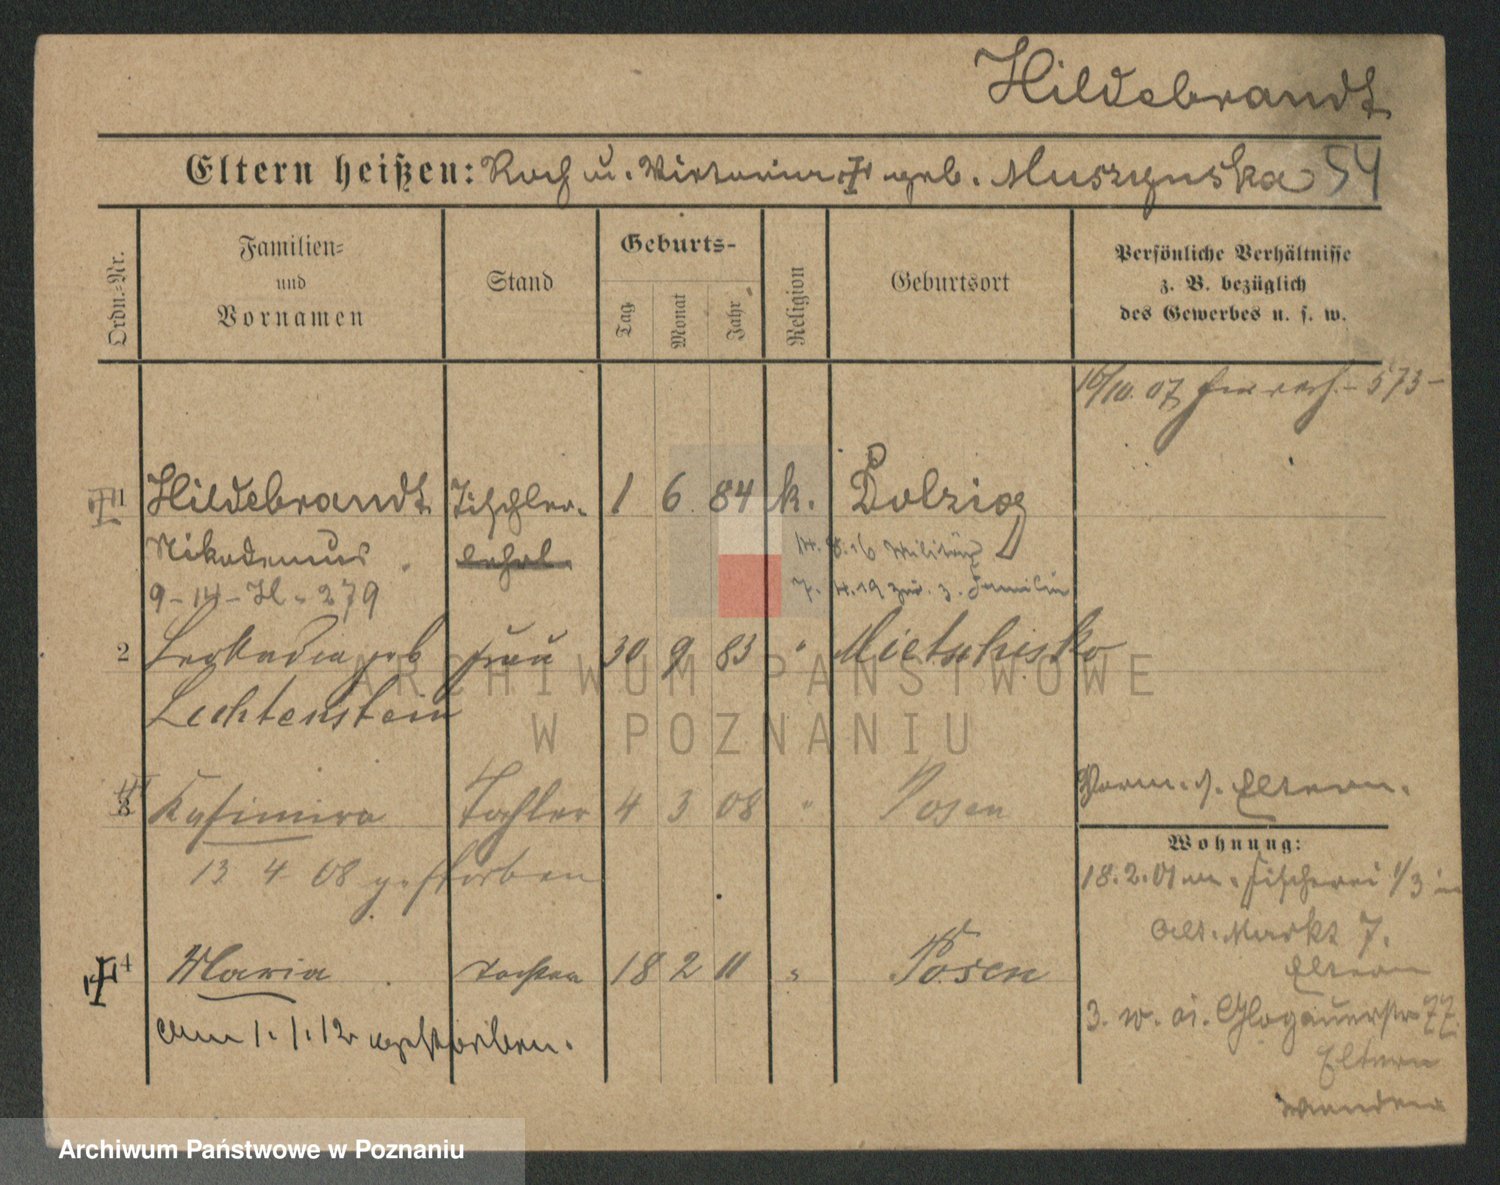 Hildebrandt
Eltern heißen: Roch u. Victoria geb. Muszynska 54
Ordn.=Nr.
Familien=
und
Vornamen
Stand
Geburts-
Tag
Monat
Jahr
Religion
Geburtsort
Persönliche Verhältnisse
z. B. bezüglich
des Gewerbes u. s. w.
16/10. 07 - 573 -
1 Hildebrandt Tischler- 1 6 84 k. Dolzig
Nikodemus lehrl. 14. 8. 16 Militär
9 - 14 - H - 279 7. 4. 19 zur. z. Familie
2 Leokadia geb Frau 30 9 83 " Mietschisko
Lechtenstein
3 Kasimira Tochter 4 3 08 " Posen
13 4 08 gestorben
Vorm. s. Eltern.
Wohnung:
18. 2. 01 Fischerei 1/3
Alt. Markt 7.
Eltern
4 Maria Tochter 18 2 11 " Posen
am 1. 1. 12 gestorben.
3. Glogauerstr 77.
Eltern
ARCHIWUM PAŃSTWOWE
W POZNANIU
Archiwum Państwowe w Poznaniu